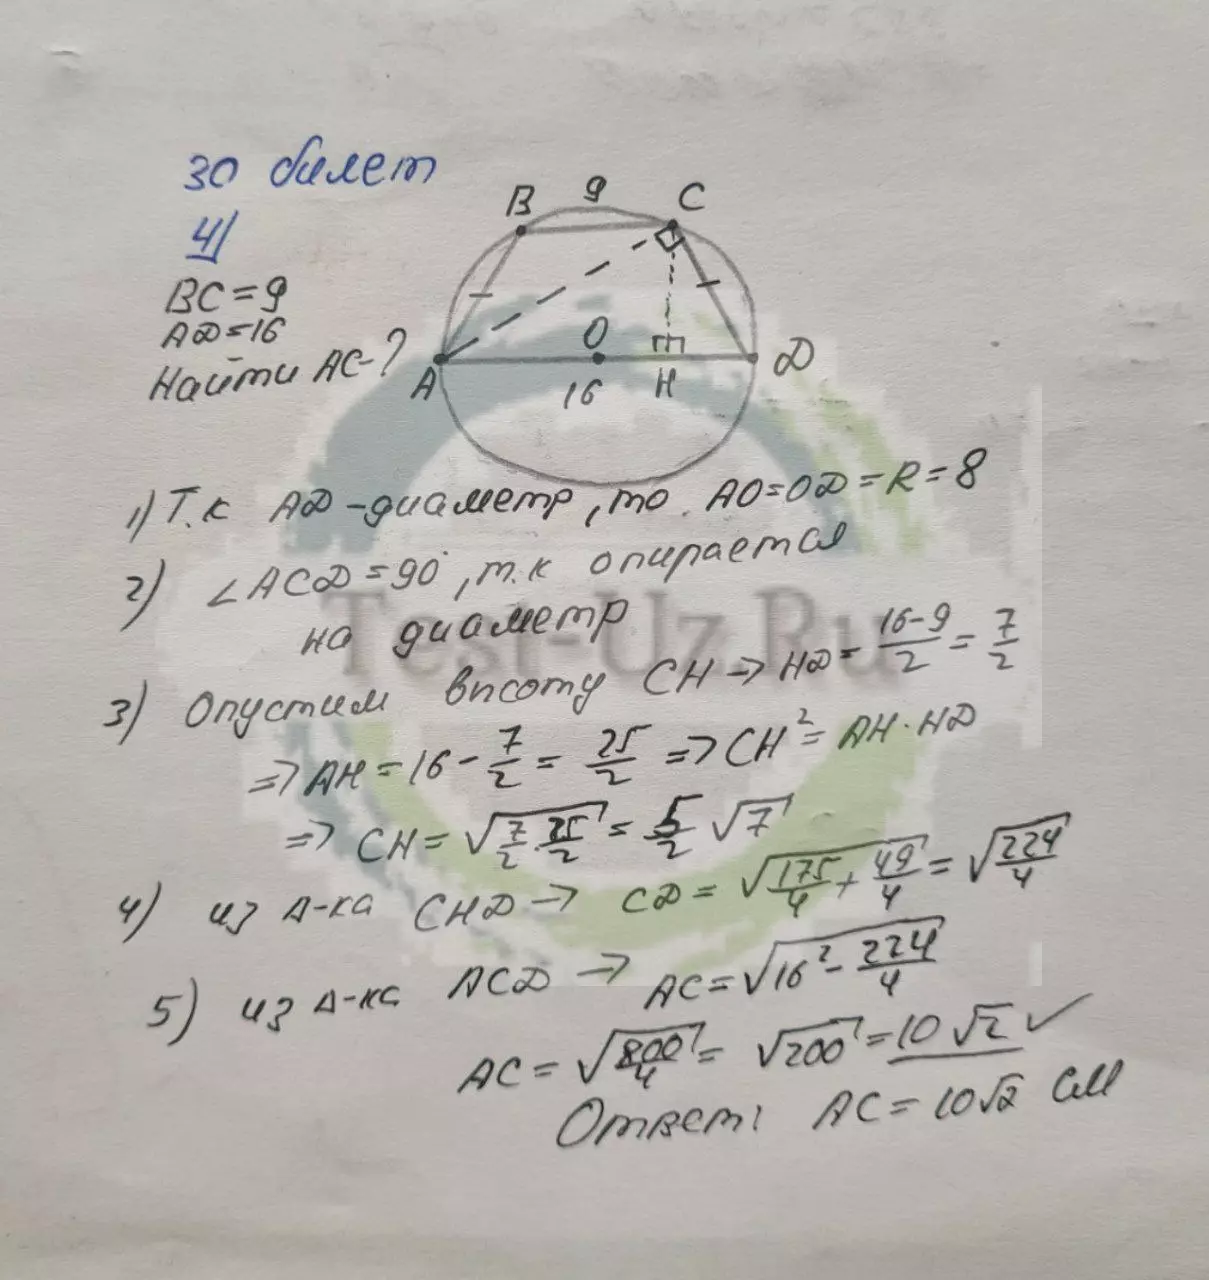 30 билет
4)
BC=9
AD=16
Найти AC-?
B 9 C
A O D
16 H
1) Т.к AD-диаметр, то AO=OD=R=8
2) ∠ACD=90°, т.к опирается
на диаметр
3) Опустим высоту CH → HD=\frac{16-9}{2}=\frac{7}{2}
=> AH=16-\frac{7}{2}=\frac{25}{2} => CH²=AH·HD
=> CH=√(\frac{7}{2}·\frac{25}{2})=\frac{5}{2}√7
4) из Δ-ка CHD → CD=√(\frac{175}{4}+\frac{49}{4})=√(\frac{224}{4})
5) из Δ-ка ACD → AC=√(16²-\frac{224}{4})
AC=√(\frac{800}{4})=√200=10√2 ✓
Ответ: AC=10√2 см
Test-Uz.Ru